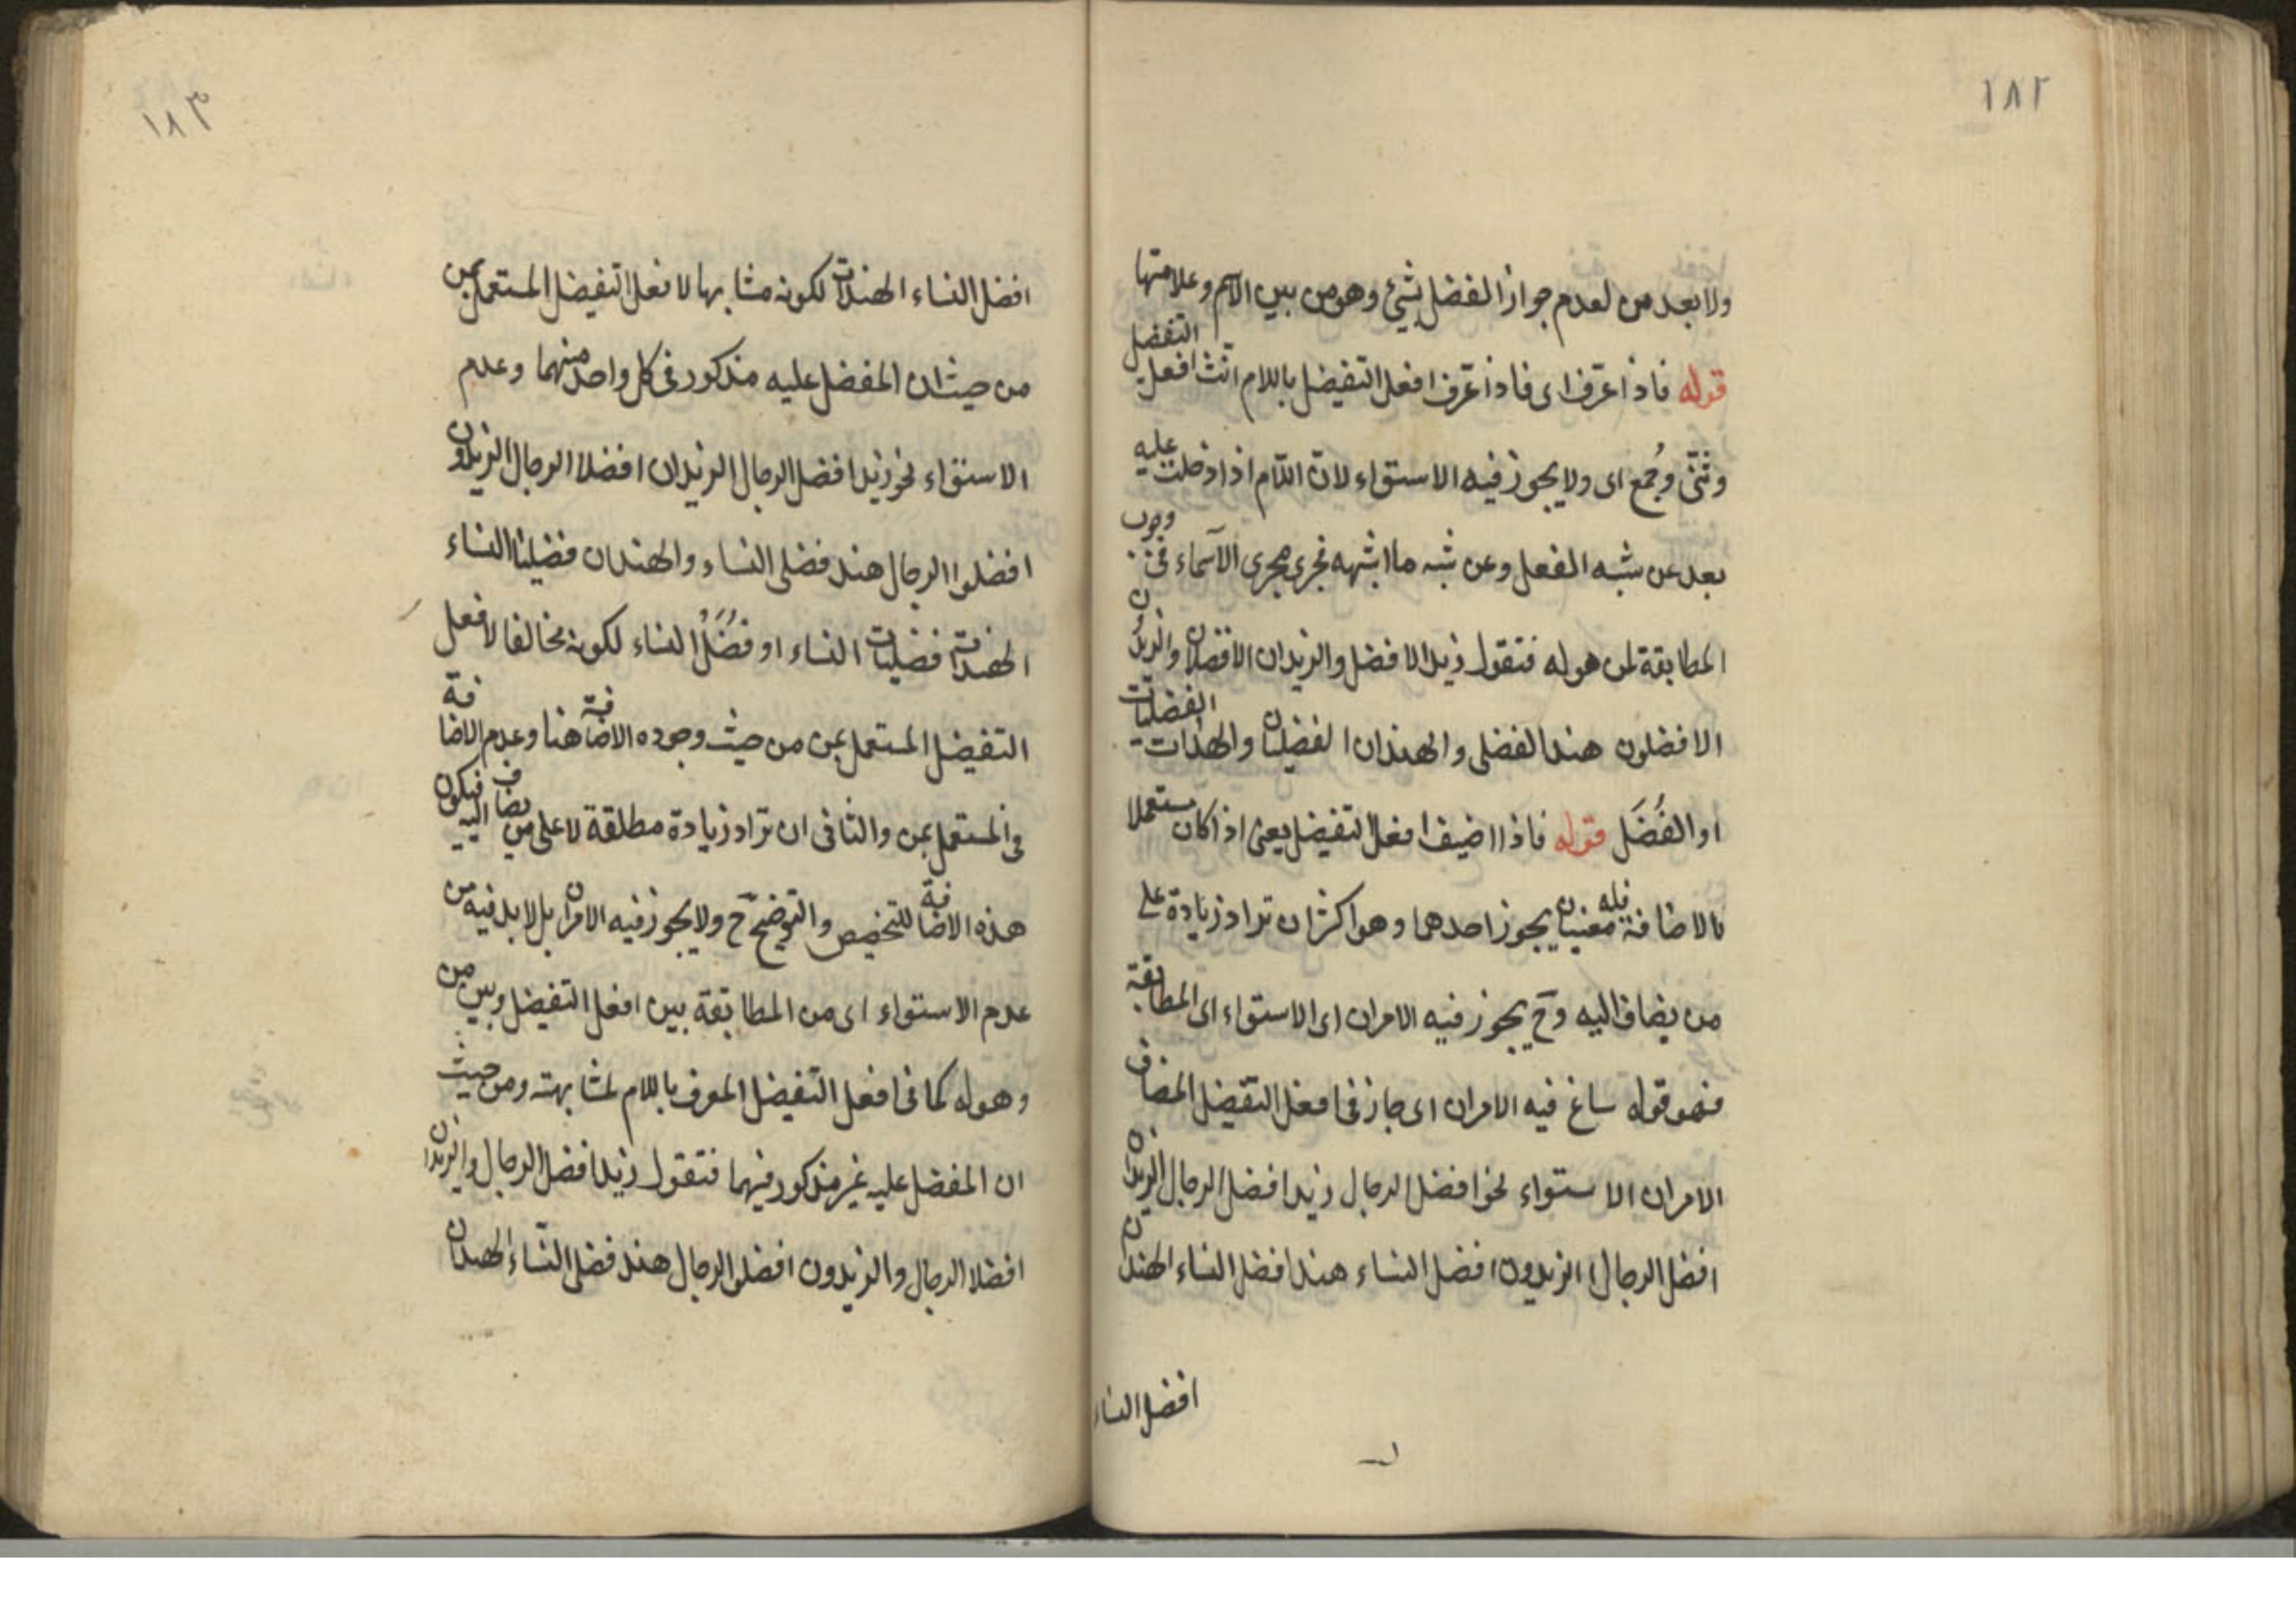 ١٨٢
ولا بعد من لعدم جواز الفضل بشئ وهو من بين الاسم وعلامتها
قوله فاذا عرف اى فاذا عرف افعل التفضيل باللام انث افعل التفضل
وثنى وجمع اى ولا يجوز فيه الاستواء لان اللام اذا دخلت عليه
بعد عن شبه الفعل وعن شبه ما اشبهه فجرى مجرى الاسماء فى وجوب
المطابقة لمن هو له فتقول زيد الافضل والزيدان الافضلان والزيدون
الافضلون هند الفضلى والهندان الفضليان والهندات الفضليات
او الفُضَل قوله فاذا اضيف افعل التفضيل يعنى اذا كان مستعملا
بالاضافة فله معنيان يجوز احدهما وهو اكثر ان تراد زيادة على
من يضاف اليه وح يجوز فيه الامران اى الاستواء اى المطابقة
فهو قوله ساغ فيه الامران اى جاز فى افعل التفضيل المضاف
الامران الاستواء نحو افضل الرجال زيد افضل الرجال الزيدان
افضل الرجال الزيدون افضل النساء هند افضل النساء الهندان
افضل النساء
١٨٣
افضل النساء الهندات لكونه مشابها لافعل التفضيل المستعمل بمن
من حيث ان المفضل عليه مذكور فى كل واحد منهما وعدم
الاستواء نحو زيد افضل الرجال الزيدان افضلا الرجال الزيدون
افضلوا الرجال هند فضلى النساء والهندان فضليتا النساء
الهندات فضليات النساء او فُضَلُ النساء لكونه مخالفا لافعل
التفضيل المستعمل بمن من حيث وجوده الاضافة هنا وعدم الاضافة
فى المستعمل بمن والثانى ان تراد زيادة مطلقة لا على من يضاف اليه فيكون
هذه الاضافة للتخصيص والتوضيح ح ولا يجوز فيه الامران بل لا بد فيه من
عدم الاستواء اى من المطابقة بين افعل التفضيل وبين من
وهو له كما فى افعل التفضيل المعرف باللام لمشابهته ومن حيث
ان المفضل عليه غير مذكور فيهما فتقول زيد افضل الرجال والزيدان
افضلا الرجال والزيدون افضلوا الرجال هند فضلى النساء الهندان